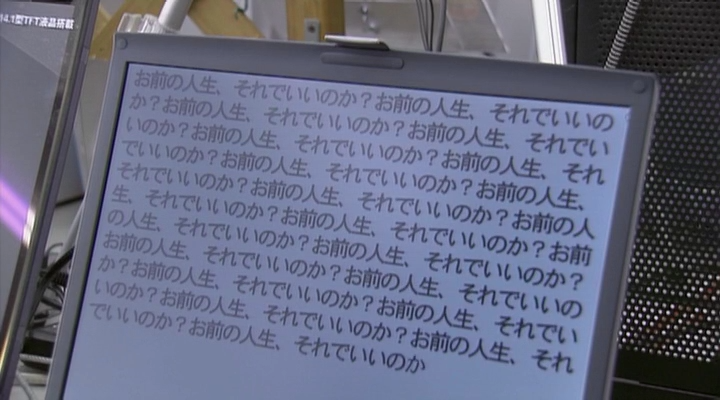 4.1型TFT液晶搭載
お前の人生、それでいいのか？お前の人生、それでいいの
か？お前の人生、それでいいのか？お前の人生、それでい
いのか？お前の人生、それでいいのか？お前の人生、それ
でいいのか？お前の人生、それでいいのか？お前の人生、
それでいいのか？お前の人生、それでいいのか？お前の人
生、それでいいのか？お前の人生、それでいいのか？お前
の人生、それでいいのか？お前の人生、それでいいのか？
お前の人生、それでいいのか？お前の人生、それでいいの
か？お前の人生、それでいいのか？お前の人生、それでい
いのか？お前の人生、それでいいのか？お前の人生、それ
でいいのか？お前の人生、それでいいのか